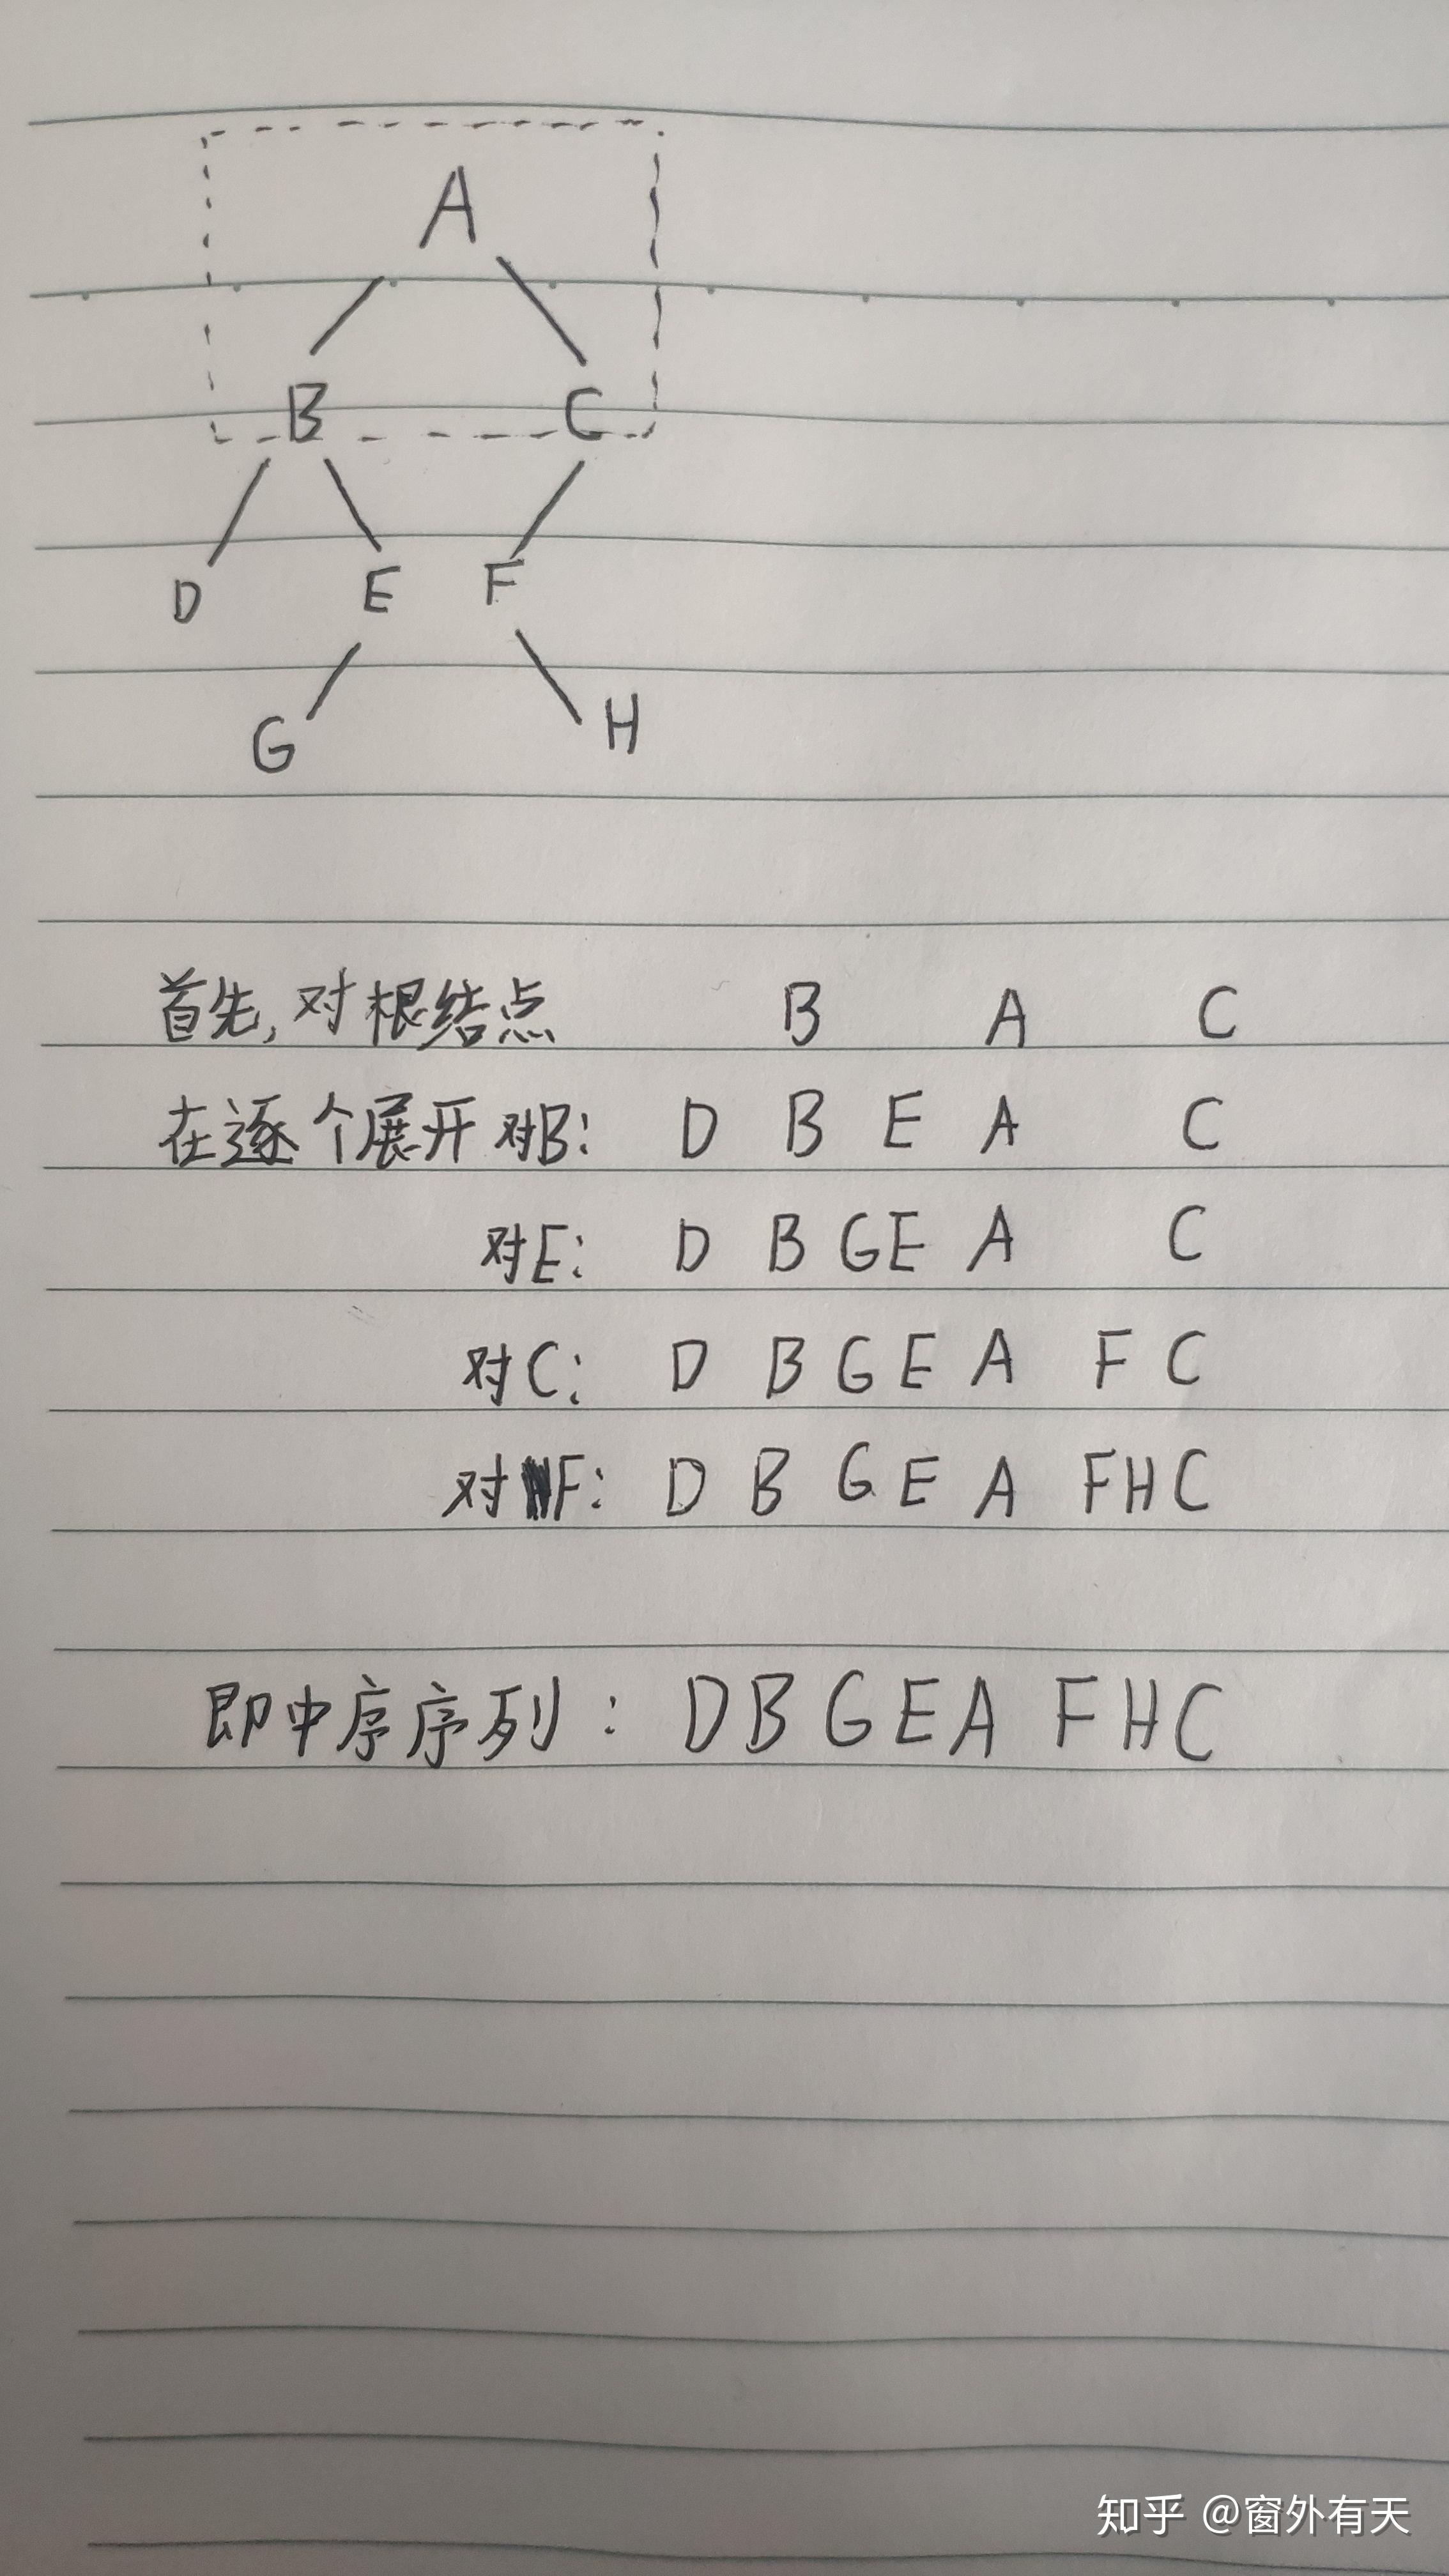 A
B C
D E F
G H
首先,对根结点 B A C
在逐个展开 对B: D B E A C
对E: D B G E A C
对C: D B G E A F C
对F: D B G E A F H C
即中序序列: D B G E A F H C
知乎 @窗外有天